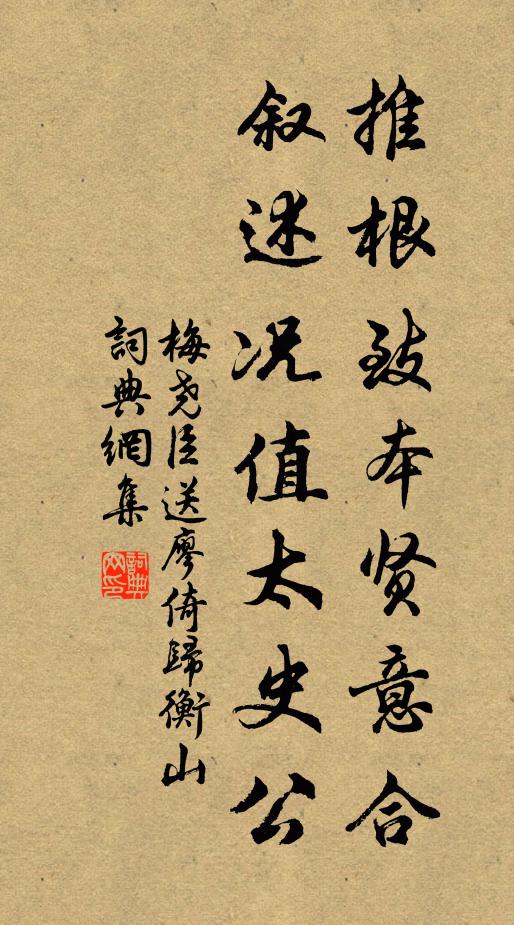 推根致本贤意合
叙述况值太史公
梅尧臣送廖倚歸衡山
詞典網集
詞典网印